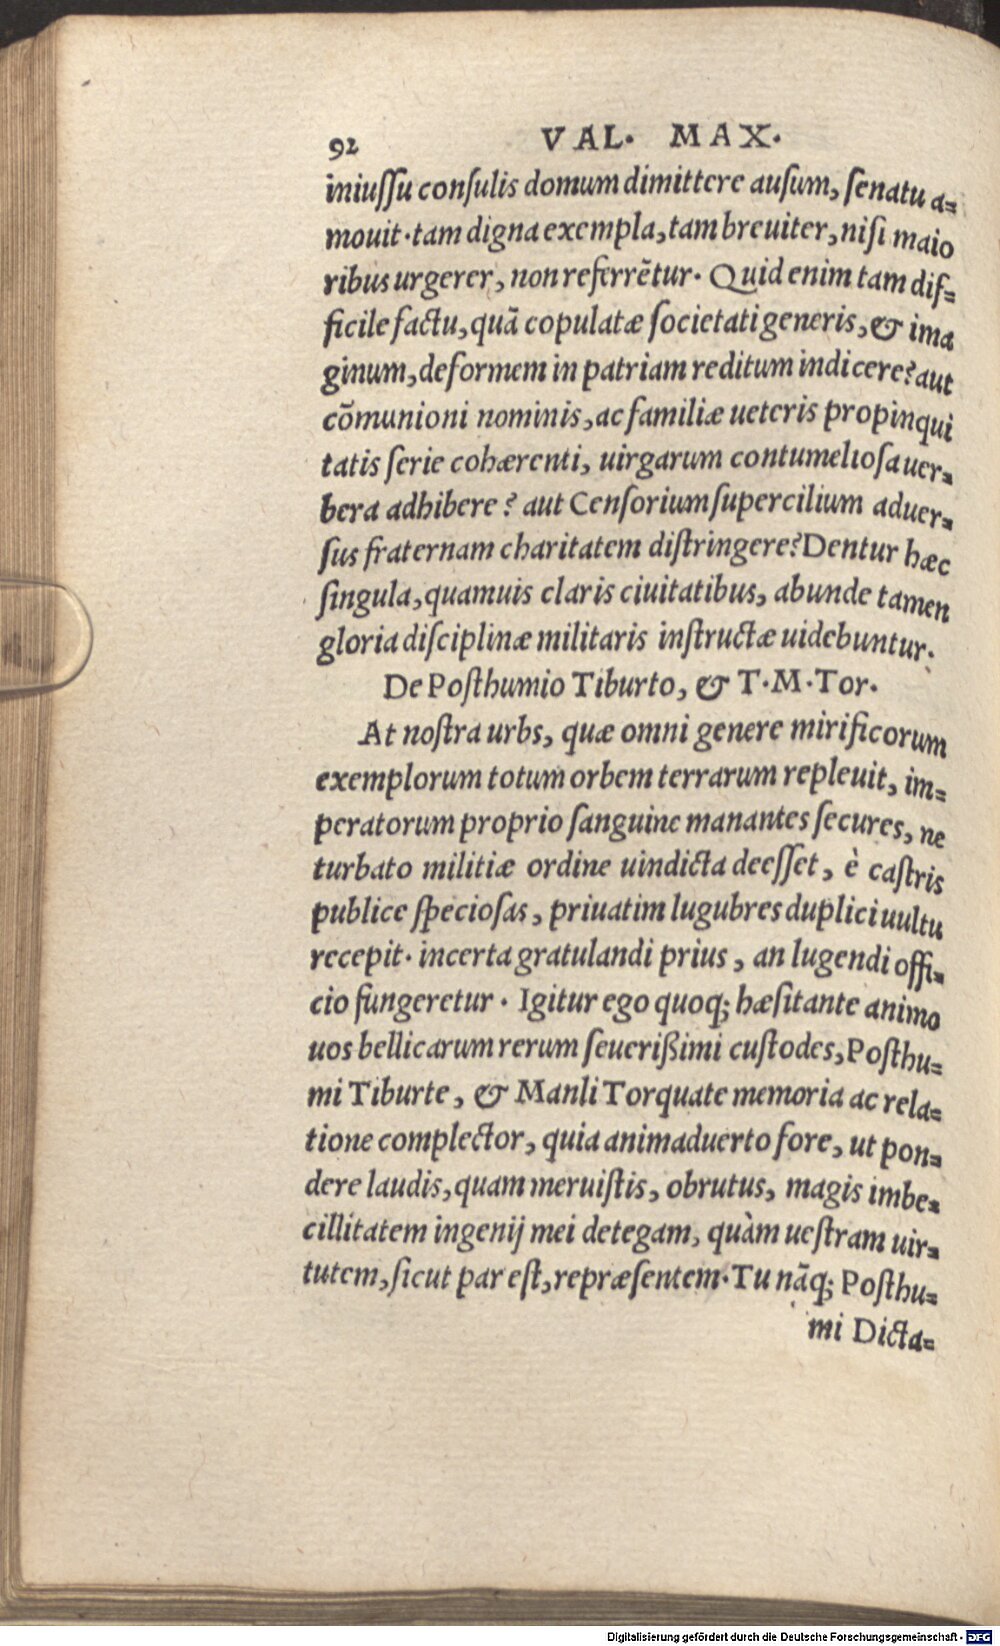 92 VAL. MAX.
iniuſſu conſulis domum dimittere auſum, ſenatu a=
mouit. tam digna exempla, tam breuiter, niſi maio
ribus urgerer, non referrẽtur. Quid enim tam dif=
ficile factu, quã copulatæ ſocietati generis, & ima
ginum, deformem in patriam reditum indicere? aut
cõmunioni nominis, ac familiæ ueteris propinqui
tatis ſerie cohærenti, uirgarum contumelioſa uer=
bera adhibere? aut Cenſorium ſupercilium aduer=
ſus fraternam charitatem diſtringere? Dentur hæc
ſingula, quamuis claris ciuitatibus, abunde tamen
gloria diſciplinæ militaris inſtructæ uidebuntur.
De Poſthumio Tiburto, & T. M. Tor.
At noſtra urbs, quæ omni genere mirificorum
exemplorum totum orbem terrarum repleuit, im=
peratorum proprio ſanguine manantes ſecures, ne
turbato militiæ ordine uindicta deeſſet, è caſtris
publice ſpecioſas, priuatim lugubres duplici uultu
recepit. incerta gratulandi prius, an lugendi offi=
cio fungeretur. Igitur ego quoq; hæſitante animo
uos bellicarum rerum ſeuerißimi cuſtodes, Poſthu=
mi Tiburte, & Manli Torquate memoria ac rela=
tione complector, quia animaduerto fore, ut pon=
dere laudis, quam meruiſtis, obrutus, magis imbe=
cillitatem ingenij mei detegam, quàm ueſtram uir=
tutem, ſicut par eſt, repræſentem. Tu nãq; Poſthu=
mi Dicta=
Digitalisierung gefördert durch die Deutsche Forschungsgemeinschaft - DFG